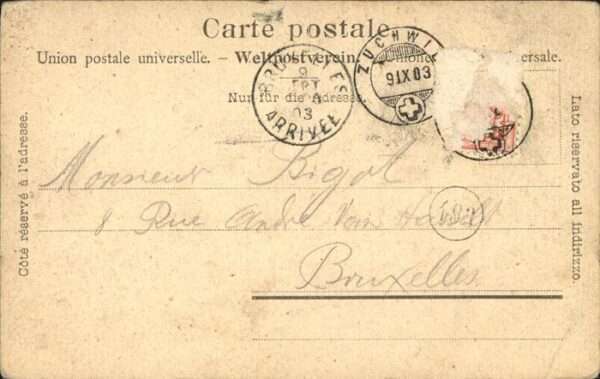 Carte postale.
Union postale universelle. - Weltpostverein. - Unione
Nur für die Adresse.
Côté réservé à l'adresse.
Lato riservato all indirizzo.
BRUXELLES
9
03
ARRIVÉE
ZUCHWIL
9 IX 03
Monsieur Bigot
8 Rue André Van
Bruxelles